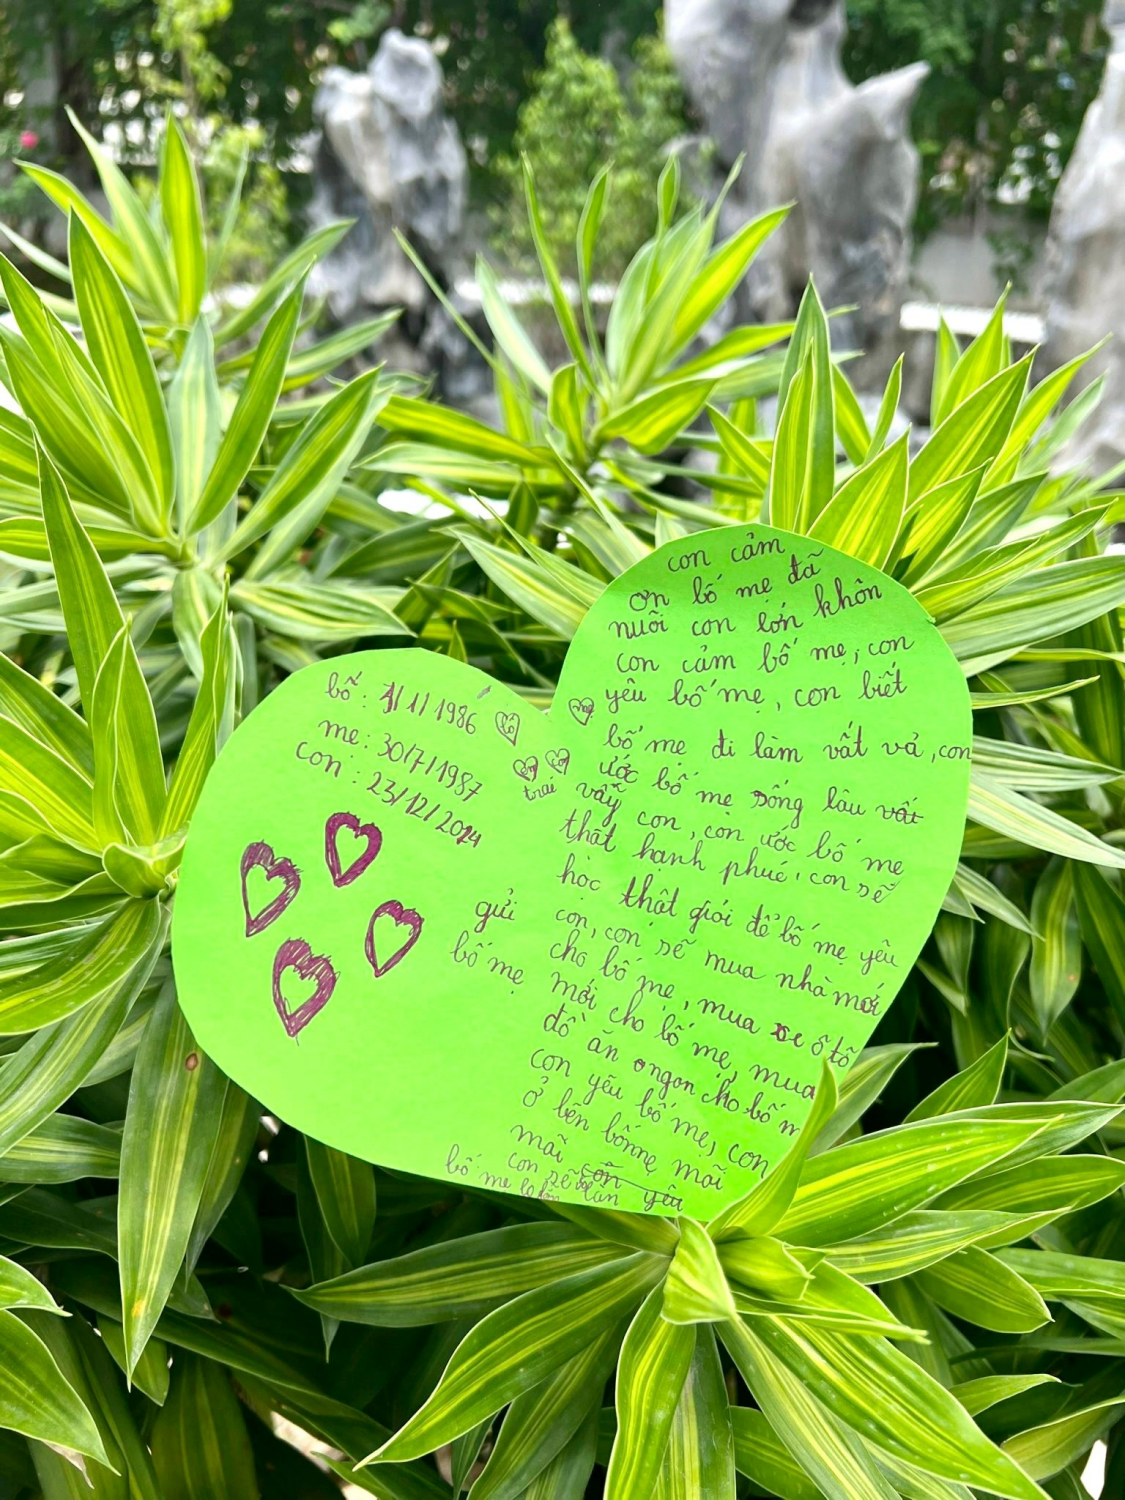 bố : 1/11/1986
mẹ : 30/7/1987
con : 23/12/2014
bố
mẹ
con
con
trai
gửi
bố mẹ
con cảm
ơn bố mẹ đã
nuôi con lớn khôn
con cảm bố mẹ, con
yêu bố mẹ, con biết
bố mẹ đi làm vất vả, con
ước bố mẹ sống lâu vất
vầy con, con ước bố mẹ
thật hạnh phúc, con sẽ
học thật giỏi để bố mẹ yêu
con, con sẽ mua nhà mới
cho bố mẹ, mua xe ô tô
mới cho bố mẹ, mua
đồ ăn ngon cho bố m
con yêu bố mẹ, con
ở bên bố mẹ mãi
mãi con yêu
con sẽ
bố mẹ